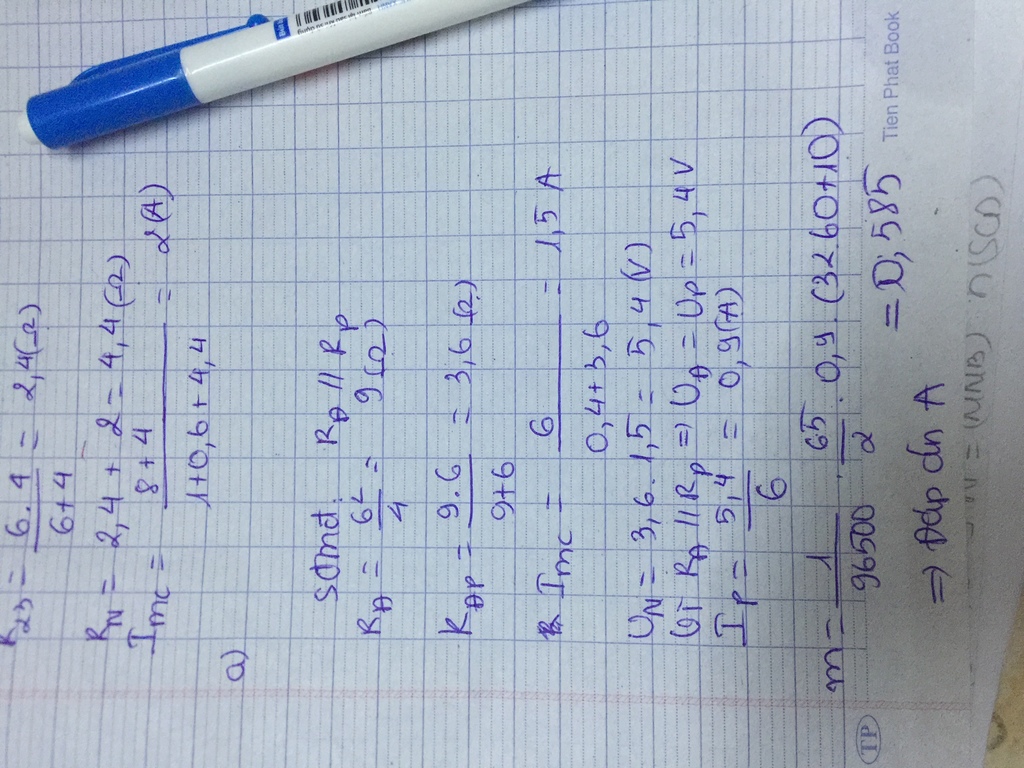 R₂₃ = 6.4 / 6+4 = 2,4(Ω)
R_N = 2,4 + 2 = 4,4(Ω)
I_mc = 8+4 / 1+0,6+4,4 = 2(A)
a)
Sđmđ: R_Đ // R_P
R_Đ = 6² / 4 = 9(Ω)
R_ĐP = 9.6 / 9+6 = 3,6(Ω)
I_mc = 6 / 0,4+3,6 = 1,5 A
U_N = 3,6.1,5 = 5,4(V)
Vì R_Đ // R_P ⇒ U_Đ = U_P = 5,4 V
I_P = 5,4 / 6 = 0,9(A)
m = 1 / 96500 . 65 / 2 . 0,9.(32.60+10)
= 0,585
⇒ Đáp án A
Tien Phat Book
TP